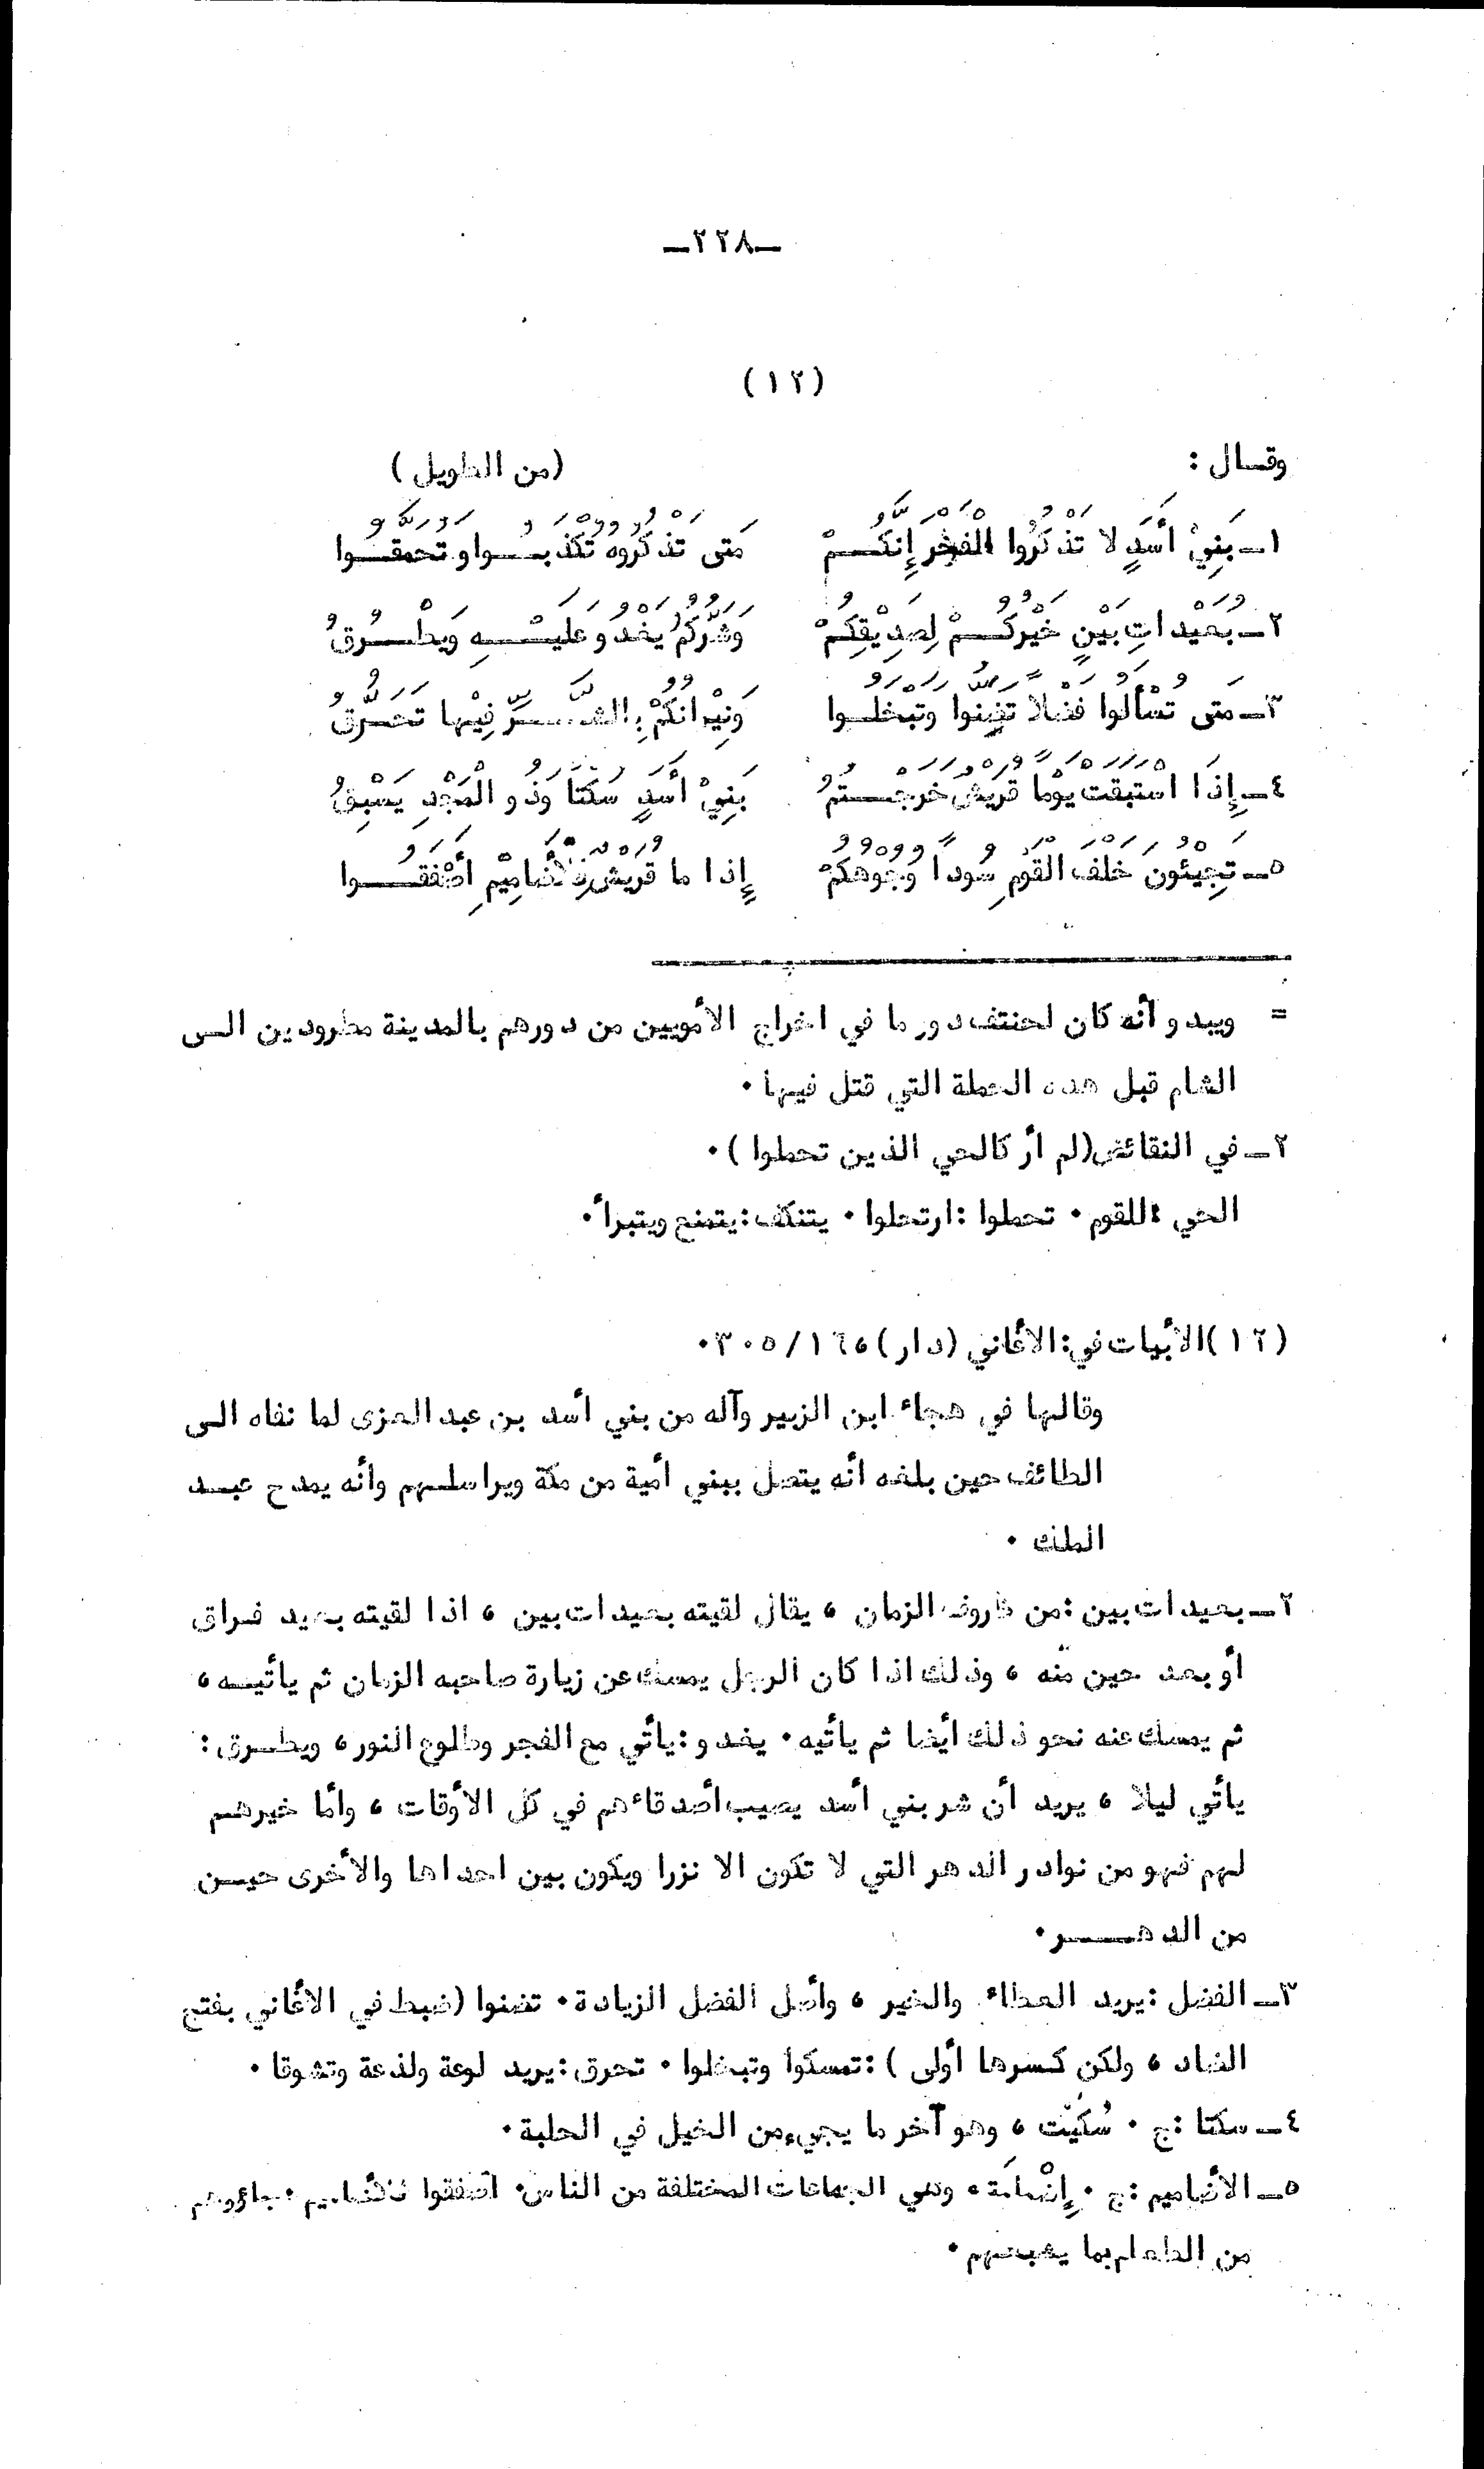 ـ٢٢٨ـ
(١٢)
وقال : (من الطويل)
١ـ بَنِيْ أَسَدٍ لا تَذْكُرُوا الْفَخْرَ إِنَّكُمْ مَتى تَذْكُرُوهُ تُكْذَبُوا وتُحَمَّقُوا
٢ـ بُعَيْداتِ بَيْنٍ خَيْرُكُمْ لِصَدِيْقِكُمْ وَشَرُّكُمُ يَغْدُو عَلَيْهِ وَيَطْرُقُ
٣ـ مَتى تُسْأَلُوا فَضْلاً تَضِنُّوا وَتَبْخَلُوا وَنِيْرانُكُمْ بِالشَّرِّ فِيْها تَحَرَّقُ
٤ـ إِذَا اسْتَبَقَتْ يَوْماً قُرَيْشٌ خَرَجْتُمُ بَنِيْ أَسَدٍ سُكْتاً وَذُو الْمَجْدِ يَسْبِقُ
٥ـ تَجِيْئُونَ خَلْفَ الْقَوْمِ سُوداً وُجُوهُكُمْ إِذا ما قُرَيْشٌ لِلأَضامِيْمِ أَصْفَقُوا
= ويبدو أنه كان لحنتف دور ما في اخراج الأمويين من دورهم بالمدينة مطرودين الى
الشام قبل هذه الحملة التي قتل فيها ٠
٢ـ في النقائض (لم أر كالحي الذين تحملوا) ٠
الحي : القوم ٠ تحملوا : ارتحلوا ٠ يتنكف : يتمنع ويتبرأ ٠
(١٢) الأبيات في : الأغاني (دار) ١٦، /٣٠٥ ٠
وقالها في هجاء ابن الزبير وآله من بني أسد بن عبد العزى لما نفاه الى
الطائف حين بلغه أنه يتصل ببني أمية من مكة ويراسلهم وأنه يمدح عبد
الملك ٠
٢ـ بعيدات بين : من ظروف الزمان ، يقال لقيته بعيدات بين ، اذا لقيته بعيد فراق
أو بعد حين منه ، وذلك اذا كان الرجل يمسك عن زيارة صاحبه الزمان ثم يأتيه ،
ثم يمسك عنه نحو ذلك أيضا ثم يأتيه ٠ يغدو : يأتي مع الفجر وطلوع النور ، ويطرق :
يأتي ليلا ، يريد أن شر بني أسد يصيب أصدقاءهم في كل الأوقات ، وأما خيرهم
لهم فهو من نوادر الدهر التي لا تكون الا نزرا ويكون بين احداها والأخرى حين
من الدهر ٠
٣ـ الفضل : يريد العطاء والخير ، وأصل الفضل الزيادة ٠ تضنوا (ضبط في الأغاني بفتح
الضاد ، ولكن كسرها أولى) : تمسكوا وتبخلوا ٠ تحرق : يريد لوعة ولذعة وتشوقا ٠
٤ـ سكتا : ج ٠ سُكَيْت ، وهو آخر ما يجيء من الخيل في الحلبة ٠
٥ـ الأضاميم : ج ٠ إِضْمامَة ، وهي الجماعات المختلفة من الناس ٠ أصفقوا للأضاميم : جاؤوهم
من الطعام بما يشبعهم ٠